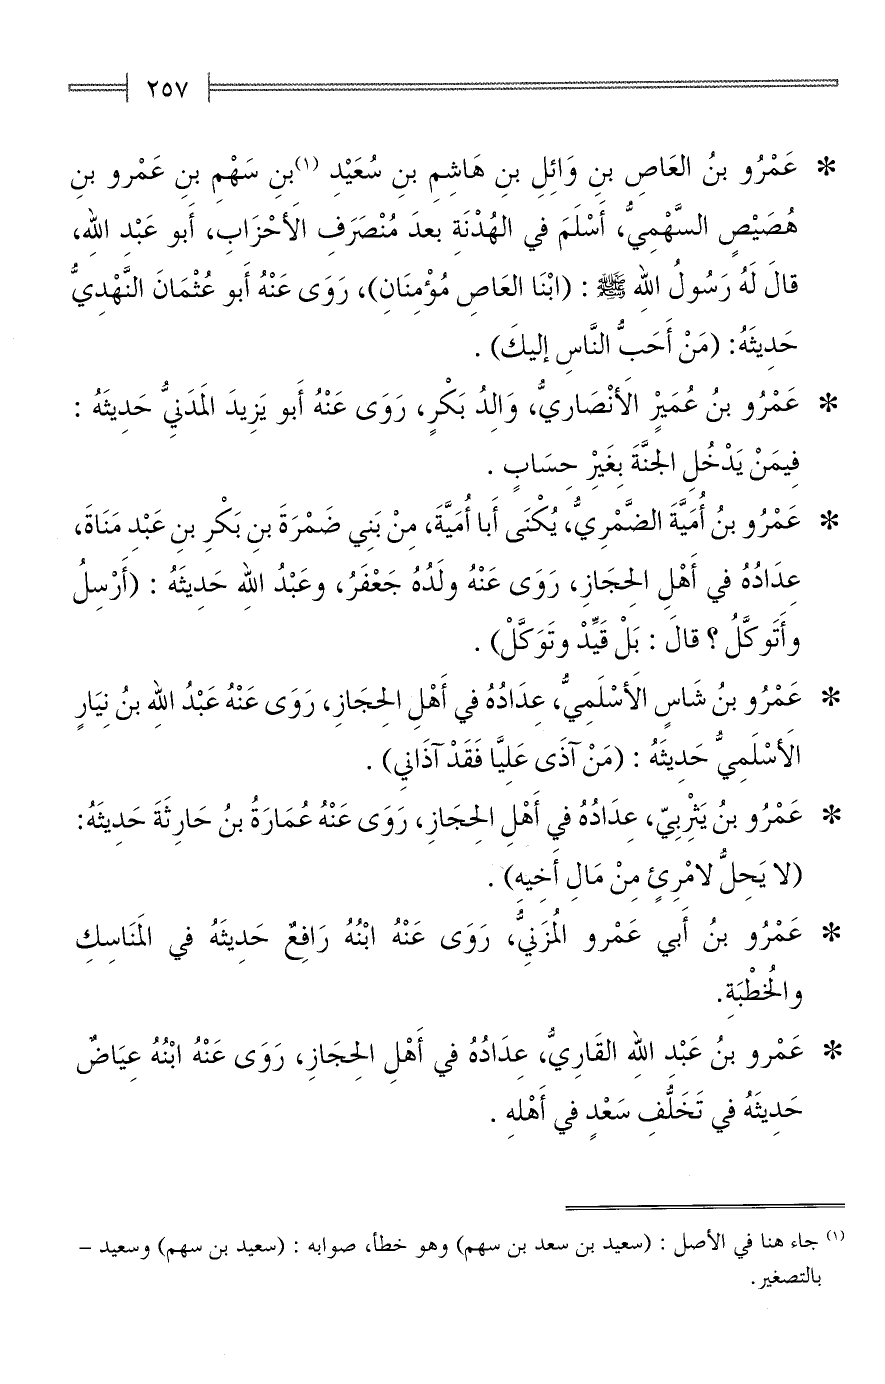 ٢٥٧
* عَمْرُو بنُ العَاصِ بنِ وَائِلِ بنِ هَاشِمِ بنِ سُعَيْدِ (١) بنِ سَهْمِ بنِ عَمْرو بنِ
هُصَيْصٍ السَّهْمِيُّ، أَسْلَمَ في الهُدْنَةِ بعدَ مُنْصَرَفِ الأَحْزَابِ، أَبو عَبْدِ اللهِ،
قالَ لَهُ رَسُولُ اللهِ ﷺ : (ابْنَا العَاصِ مُؤْمِنَانِ)، رَوَى عَنْهُ أَبو عُثْمَانَ النَّهْدِيُّ
حَدِيثَهُ: (مَنْ أَحَبُّ النَّاسِ إليكَ) .
* عَمْرُو بنُ عُمَيْرٍ الأَنْصَارِيُّ، وَالِدُ بَكْرٍ، رَوَى عَنْهُ أَبو يَزِيدَ المَدَنِيُّ حَدِيثَهُ :
فِيمَنْ يَدْخُلِ الجنَّةَ بِغَيْرِ حِسَابٍ .
* عَمْرُو بنُ أُمَيَّةَ الضَّمْرِيُّ، يُكْنَى أَبا أُمَيَّةَ، مِنْ بَنِي ضَمْرَةَ بنِ بَكْرِ بنِ عَبْدِ مَنَاةَ،
عِدَادُهُ في أَهْلِ الحِجَازِ، رَوَى عَنْهُ ولَدُهُ جَعْفَرُ، وعَبْدُ اللهِ حَدِيثَهُ : (أُرْسِلُ
وأَتَوكَّلُ ؟ قالَ : بَلْ قَيِّدْ وتَوَكَّلْ) .
* عَمْرُو بنُ شَاسٍ الأَسْلَمِيُّ، عِدَادُهُ في أَهْلِ الحِجَازِ، رَوَى عَنْهُ عَبْدُ اللهِ بنُ نِيَارٍ
الأَسْلَمِيُّ حَدِيثَهُ : (مَنْ آذَى عَلِيَّا فَقَدْ آذَانِي) .
* عَمْرُو بنُ يَثْرِبِيّ، عِدَادُهُ في أَهْلِ الحِجَازِ، رَوَى عَنْهُ عُمَارَةُ بنُ حَارِثَةَ حَدِيثَهُ:
(لا يَحِلُّ لامْرِئٍ مِنْ مَالِ أَخِيهِ) .
* عَمْرُو بنُ أَبي عَمْرو المُزَنِيُّ، رَوَى عَنْهُ ابْنُهُ رَافِعٌ حَدِيثَهُ في المَنَاسِكِ
والخُطْبَةِ.
* عَمْرو بنُ عَبْدِ اللهِ القَارِيُّ، عِدَادُهُ في أَهْلِ الحِجَازِ، رَوَى عَنْهُ ابْنُهُ عِيَاضٌ
حَدِيثَهُ في تَخَلُّفِ سَعْدٍ في أَهْلِهِ .
(١) جاء هنا في الأصل : (سعيد بن سعد بن سهم) وهو خطأ، صوابه : (سعيد بن سهم) وسعيد –
بالتصغير.